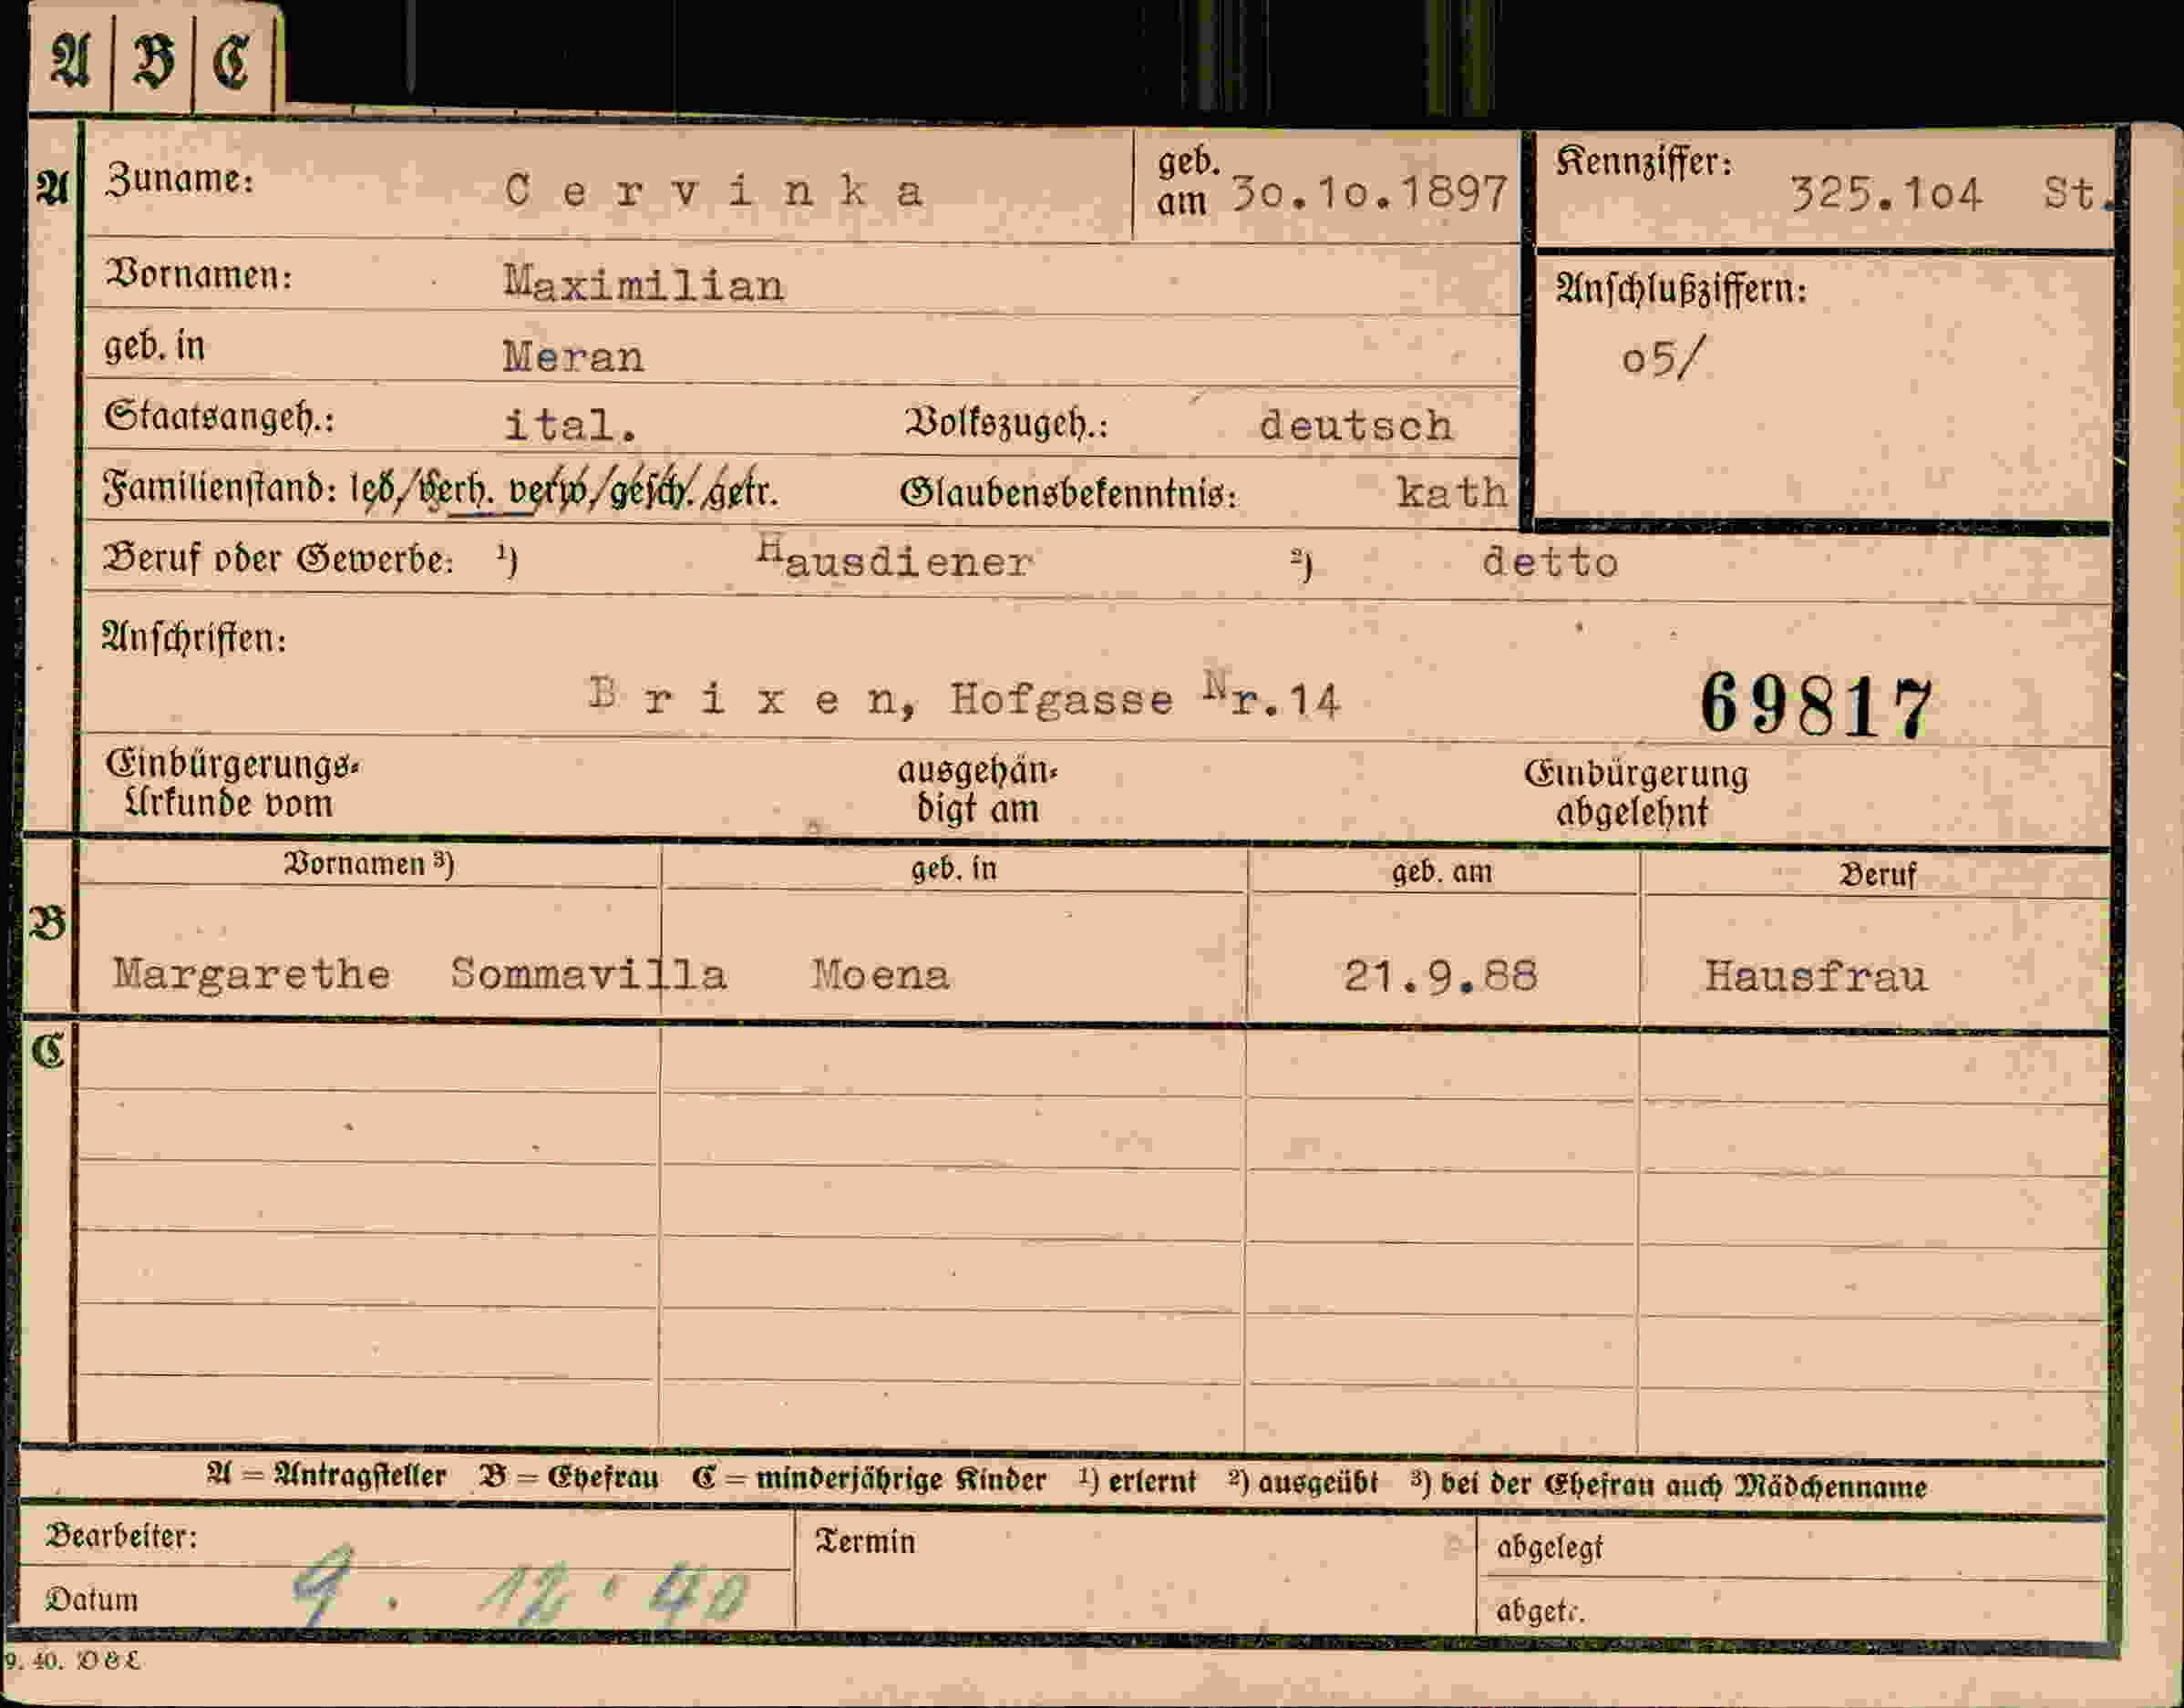 A | B | C
A Zuname: Cervinka geb. am 30.10.1897 Kennziffer: 325.104 St.
Vornamen: Maximilian Anschlußziffern:
geb. in Meran o5/
Staatsangeh.: ital. Volkszugeh.: deutsch
Familienstand: led./verh. verw./gesch./getr. Glaubensbekenntnis: kath
Beruf oder Gewerbe: ¹) Hausdiener ²) detto
Anschriften:
Brixen, Hofgasse Nr.14 69817
Einbürgerungs- ausgehän- Einbürgerung
Urkunde vom digt am abgelehnt
Vornamen ³) geb. in geb. am Beruf
B
Margarethe Sommavilla Moena 21.9.88 Hausfrau
C
A = Antragsteller B = Ehefrau C = minderjährige Kinder ¹) erlernt ²) ausgeübt ³) bei der Ehefrau auch Mädchenname
Bearbeiter: Termin abgelegt
Datum 9. 12. 40 abgetr.
9. 40. D & L